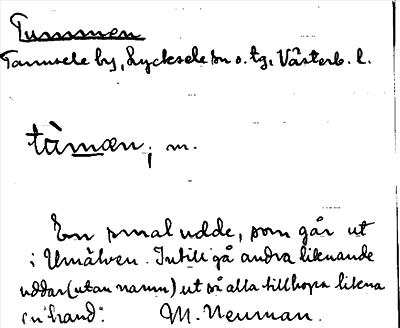 Tummen
Tannsele by, Lycksele sn o. tg, Västerb. l.
tùmæn, m.
En smal udde, som går ut
i Umälven. Intill gå andra liknande
uddar (utan namn) ut så alla tillhopa likna
en "hand". M. Neuman.